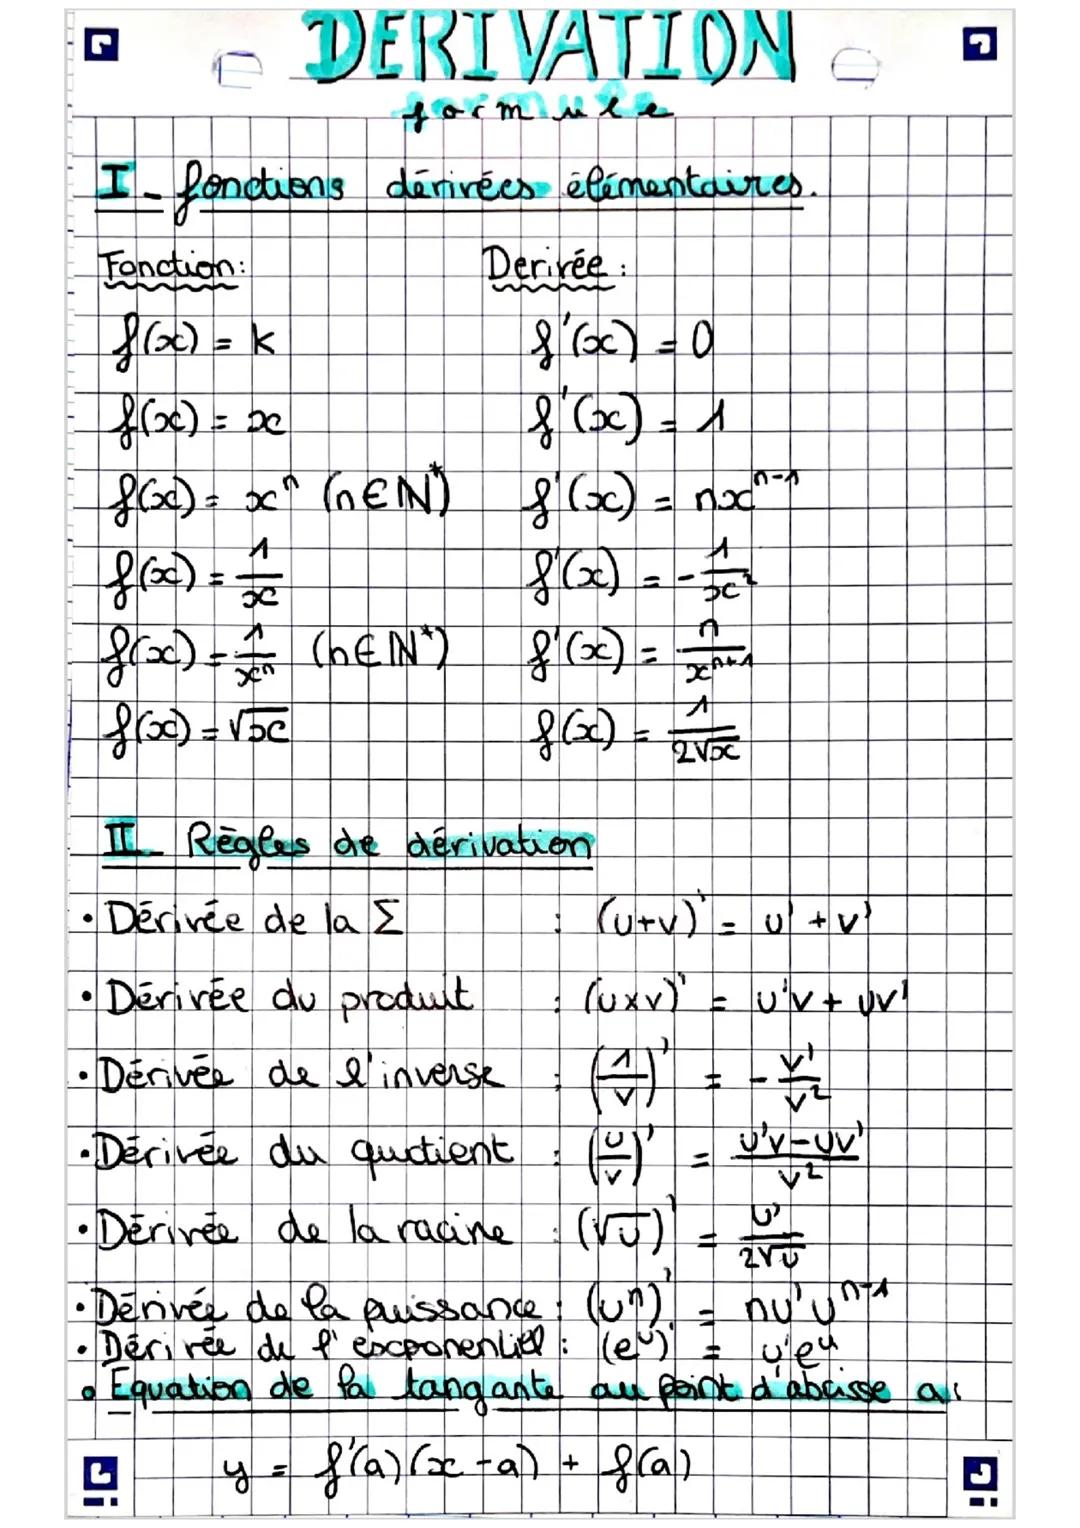 DERIVATION
formule
I - fonctions dérivées élémentaires.
Fonction: Derivée :
f(x) = k f'(x) = 0
f(x) = x f'(x) = 1
f(x) = xⁿ (n∈ℕ*) f'(x) = nxⁿ⁻¹
f(x) = 1/x f'(x) = -1/x²
f(x) = 1/xⁿ (n∈ℕ*) f'(x) = n/xⁿ⁺¹
f(x) = √x f(x) = 1/2√x
II - Règles de dérivation
• Dérivée de la Σ : (u+v)' = u' + v'
• Dérivée du produit : (u×v)' = u'v + uv'
• Dérivée de l'inverse : (1/v)' = - v'/v²
• Dérivée du quotient : (u/v)' = u'v-uv'/v²
• Dérivée de la racine : (√u)' = u'/2√u
• Dérivée de la puissance : (uⁿ)' = nu'uⁿ⁻¹
• Dérivée de l'exponentiell : (eᵘ)' = u'eᵘ
• Equation de la tangante au point d'abcisse a :
y = f'(a)(x-a) + f(a)